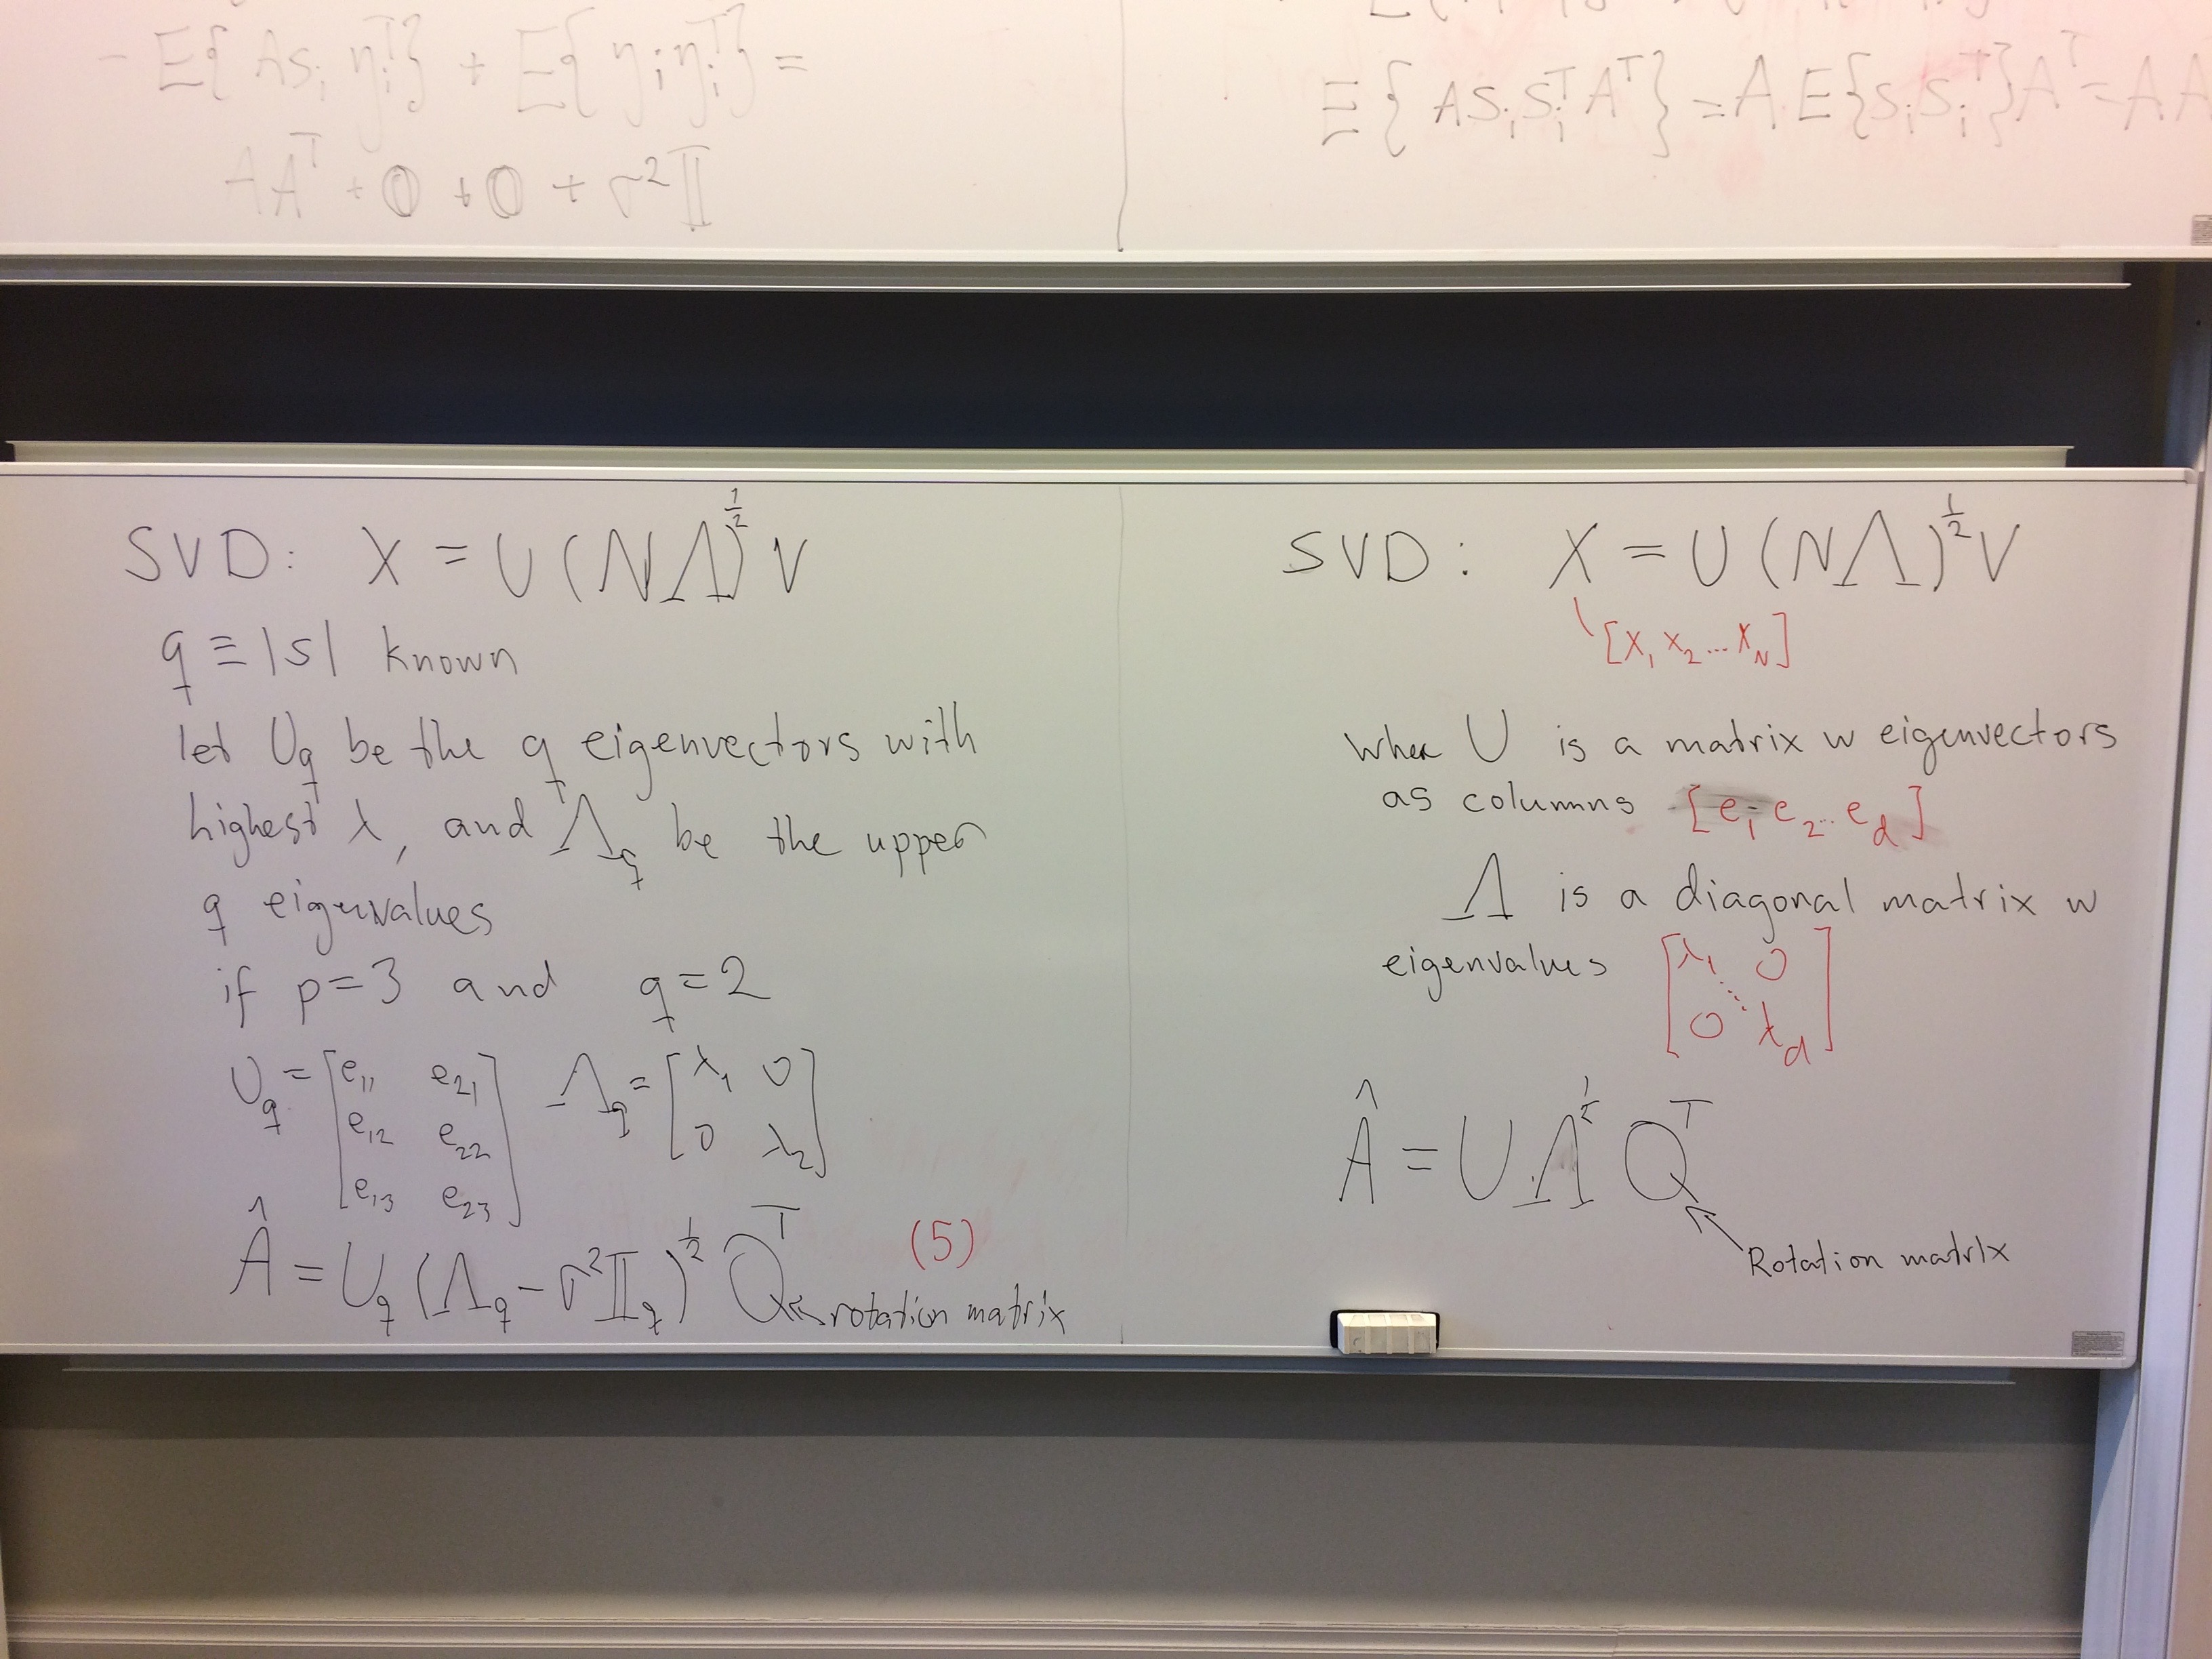 - E{ As_i η_i^T} + E{ η_i η_i^T} =
AA^T + 𝟘 + 𝟘 + σ^2 𝕀
E{ A s_i s_i^T A^T } = A E{s_i s_i^T} A^T = A A
SVD: X = U (NΛ)^{1/2} V
q ≡ |s| known
let U_q be the q eigenvectors with
highest λ, and Λ_q be the upper
q eigenvalues
if p=3 and q=2
U_q = [e_11 e_21 Λ_q = [λ_1 0
e_12 e_22 0 λ_2]
e_13 e_23]
Â = U_q (Λ_q - σ^2 𝕀_q)^{1/2} Q^T (5)
rotation matrix
SVD : X = U (NΛ)^{1/2} V
[x_1 x_2 ... x_N]
wher U is a matrix w eigenvectors
as columns [e_1 e_2 .. e_d]
Λ is a diagonal matrix w
eigenvalues [λ_1 0
0 λ_d]
Â = U Λ^{1/2} Q^T
Rotation matrix